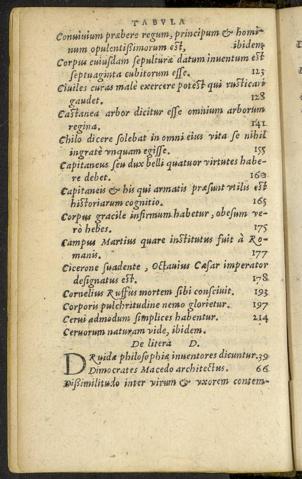 TABVLA
Conuiuium præbere regum, principum & homi-
num opulentissimorum est, ibidem
Corpus cuiusdam sepulturæ datum inuentum est
septuaginta cubitorum esse. 123
Ciuiles curas male exercere potest qui rusticari
gaudet. 128
Castanea arbor dicitur esse omnium arborum
regina. 141
Chilo dicere solebat in omni eius vita se nihil
ingratè vnquam egisse. 155
Capitaneus seu dux belli quatuor virtutes habe-
re debet. 160
Capitaneis & his qui armatis præsunt vtilis est
historiarum cognitio. 165
Corpus gracile infirmum habetur, obesum ve-
rò hebes. 175
Campus Martius quare institutus fuit à Ro-
manis. 177
Cicerone suadente, Octauius Cæsar imperator
designatus est. 178
Cornelius Ruffus mortem sibi consciuit. 193
Corporis pulchritudine nemo glorietur. 197
Cerui admodum simplices habentur. 214
Ceruorum naturam vide, ibidem.
De litera D.
DRuidæ philosophiæ inuentores dicuntur. 39
Dimocrates Macedo architectus. 66
Dissimilitudo inter virum & vxorem contem-